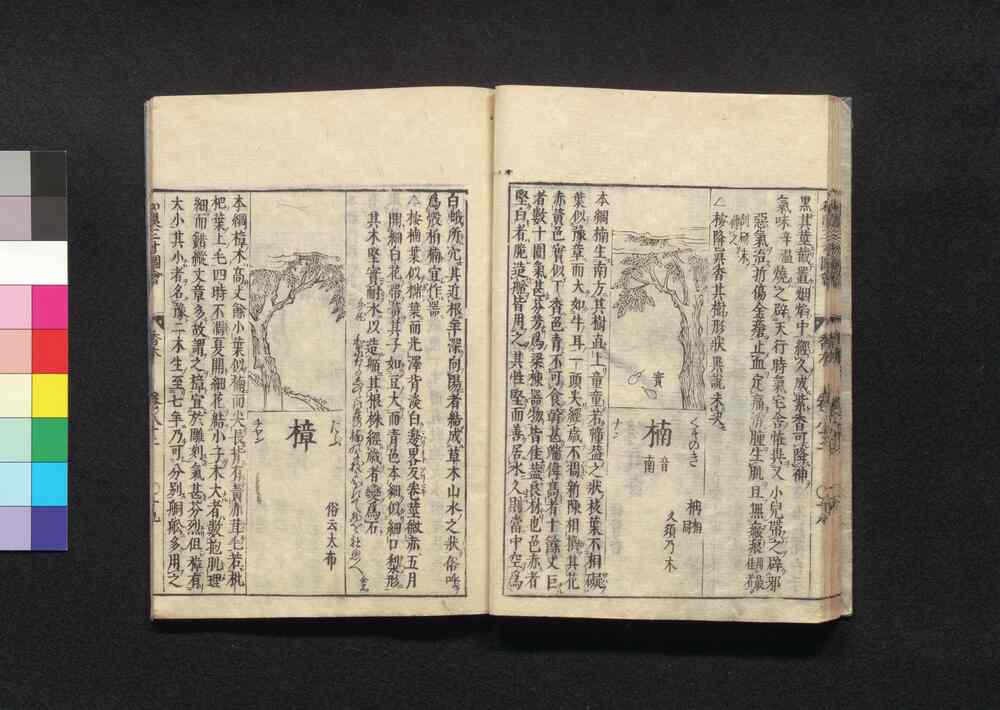 黒其葉戠置烟焰中經久成紫香可降神
氣味辛溫燒之辟天行時氣宅舍怪異又小兒帶之辟邪
惡氣治折傷金瘡止血定痛消腫生肌
△按降眞香其樹形狀集說未矣
くすのき
楠
音南
ナン
柟同
久須乃木
實
本綱楠生南方其樹直上童童若幢蓋之狀枝葉不相礙
葉似豫章而大如牛耳一頭尖經歲不凋新陳相換其花
赤黃色實似丁香色青不可食幹甚端偉高者十餘丈巨
者數十圍氣甚芬芳爲梁棟器物皆佳蓋良材也色赤者
堅白者脆造船皆用之其性堅而善居水久則當中空爲
白蟻所穴其近根年深向陽者結成草木山水之狀俗呼
爲骰栢楠宜作器
△按楠葉似櫧葉而光澤背淡白邊畧反卷莖微赤五月
開細白花帶黃其子如豆大而青色本細似細口梨形
其木堅實耐水以造船其根株經歲者變爲石
樟
チヤン
俗云太布
本綱樟木高丈餘小葉似楠而尖長背有黃赤茸毛若枇
杷葉上毛四時不凋夏開細花結小子木大者數抱肌理
細而錯縱文章多故謂之樟宜於雕刻氣甚芬烈但樟有
大小其小者名豫二木生至七年乃可分別